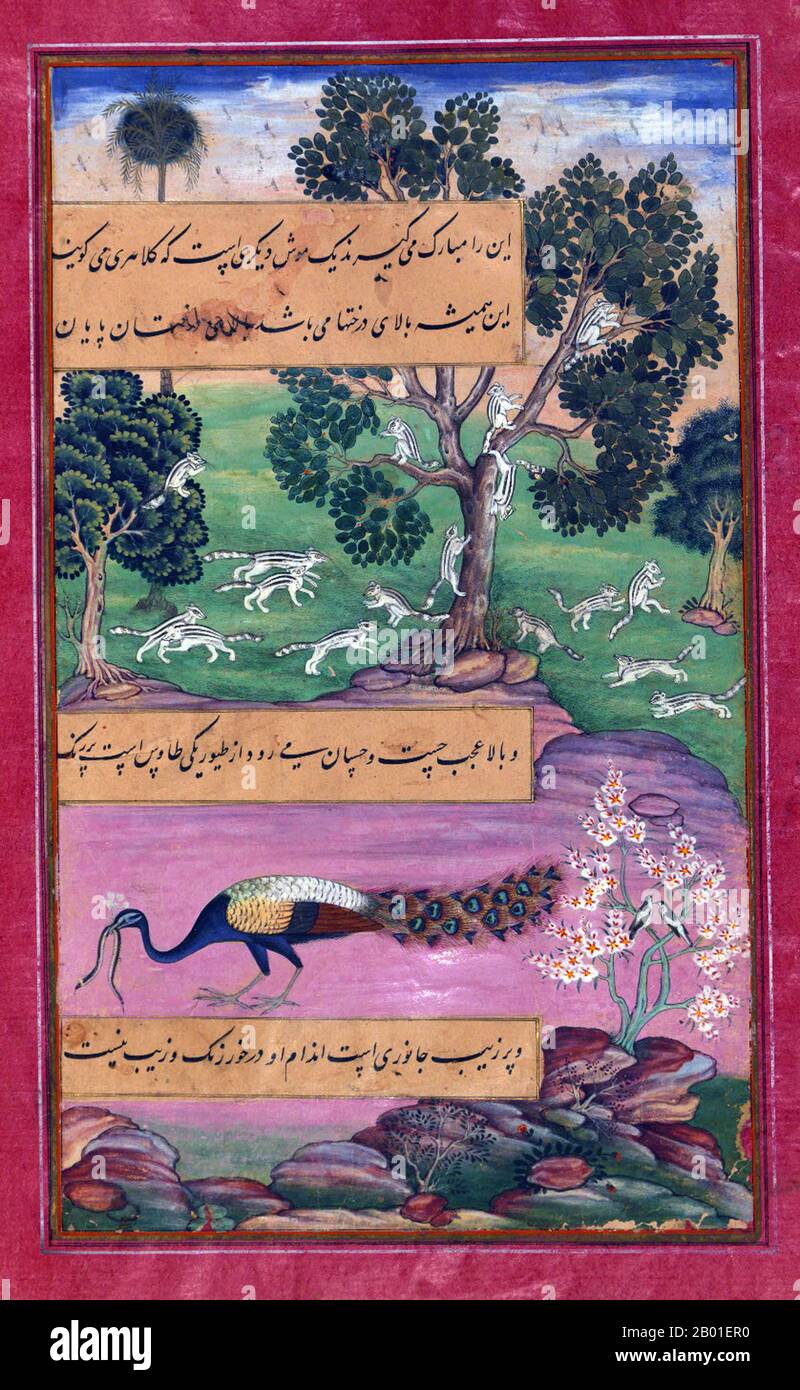 این را مبارک می گیرند یک موش دیگری است که کلاهری می گویند
این همیشه بالای درختها می باشد پایان
و بالا عجب چست و چسپان می رود از طیور یکی طاوس است پر رنگ
و پر زیب جانوری است اندام او در خور رنگ و زیب نیست
alamy
alamy
Image ID: 2B01ER0
www.alamy.com